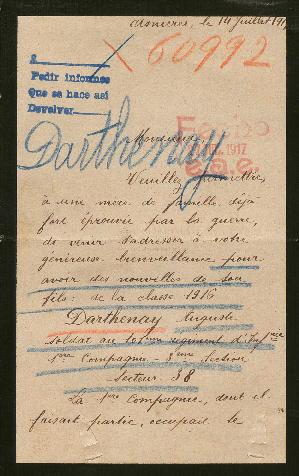 Asnières, le 14 Juillet 191
X 60992
a
Pedir informes
Que se hace así
Devolver
Darthenay
1917
Monsieur
Veuillez permettre,
à une mère de famille déjà
fort éprouvée par la guerre,
de venir s'adresser à votre
généreuse bienveillance pour
avoir des nouvelles de son
fils: de la classe 1916
Darthenay Auguste
Soldat au régiment d'Inf
1ère Compagnie - Section
Secteur 38
La 1ère Compagnie, dont il
faisait partie, occupait le